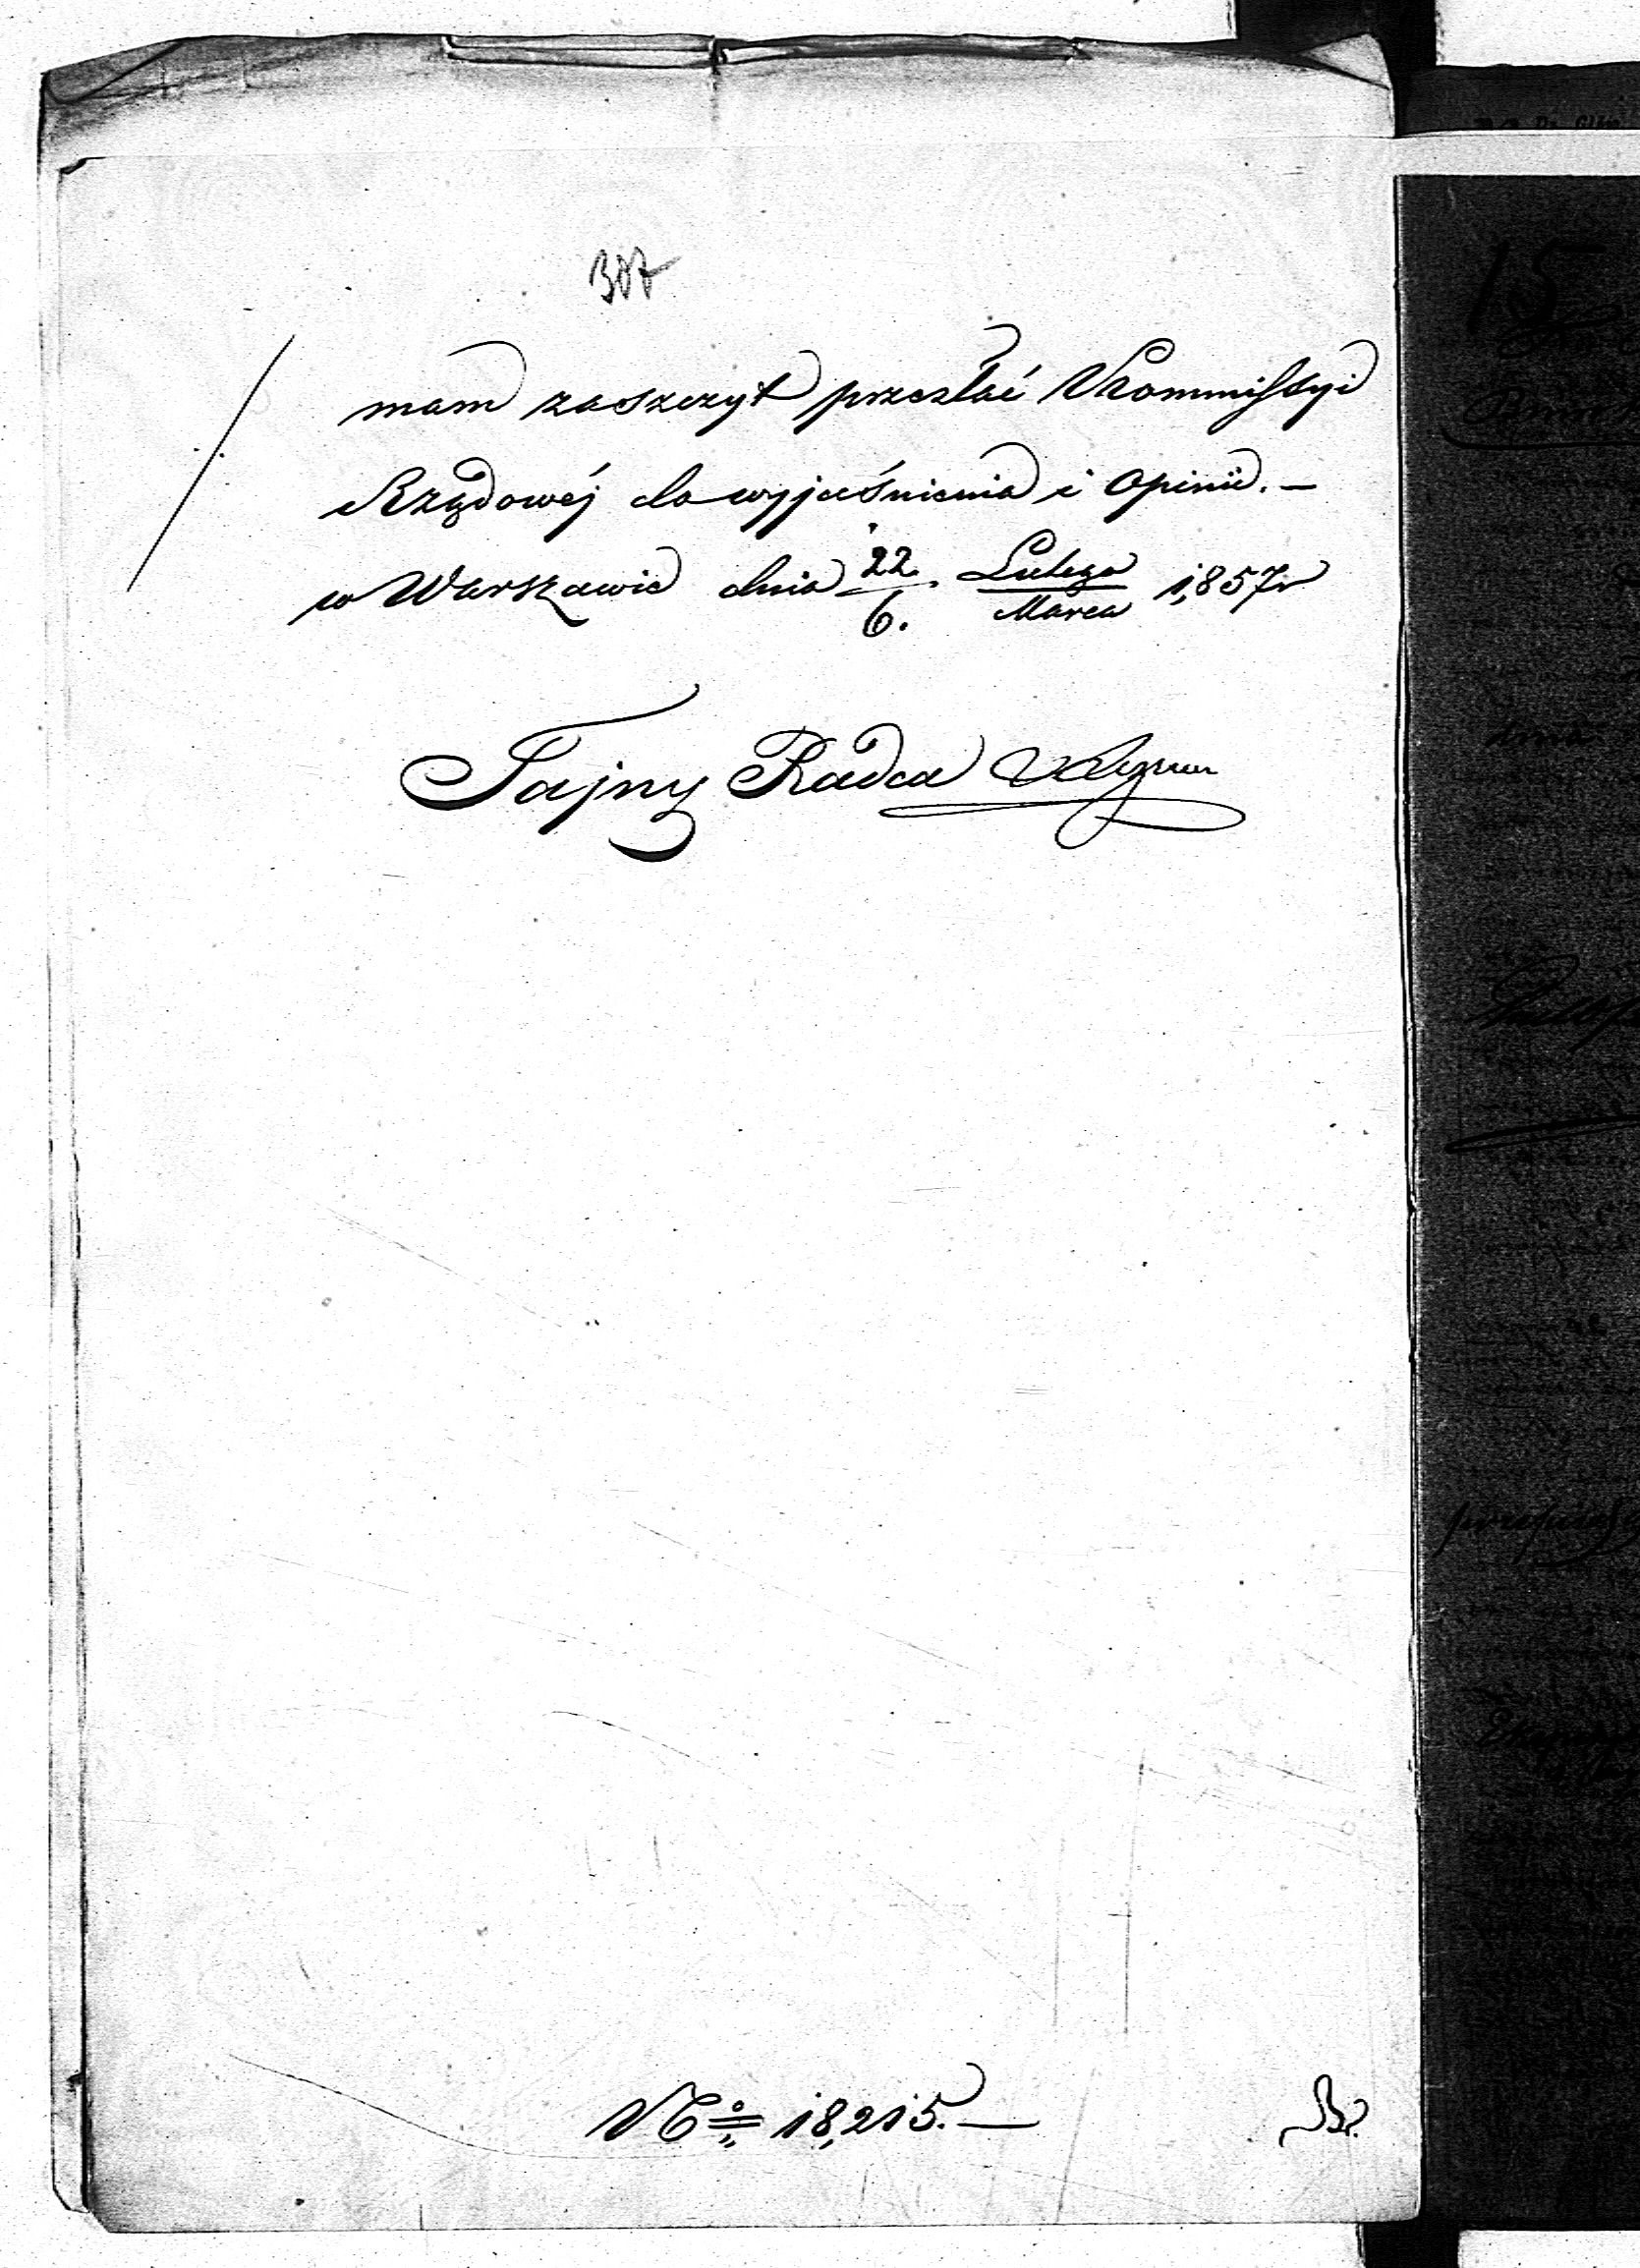 307
mam zaszczyt przesłać Kommissyi
Rządowéj do wyjaśnienia i Opinii. —
w Warszawie dnia 22/6. Lutego/Marca 1,857r
Tajny Radca
No 18,215. —